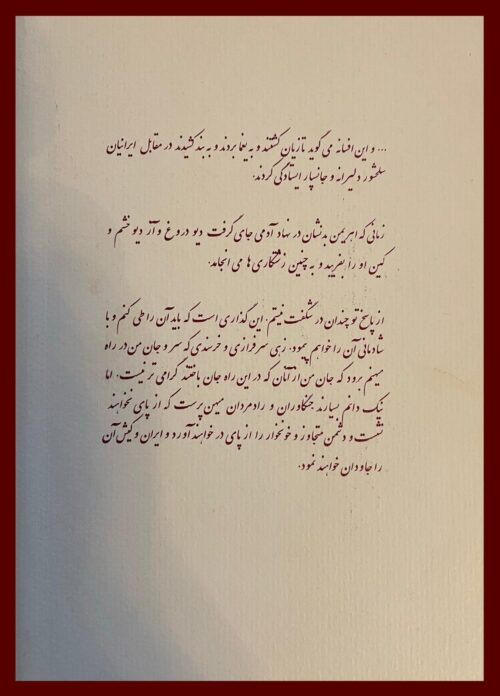 ... و این افسانه می گوید تازیان کشتند و به یغما بردند و به بند کشیدند در مقابل ایرانیان
سلحشور دلیرانه و جانسپار ایستادگی کردند.
زمانی که اهریمن بدنشان در نهاد آدمی جای گرفت دیو دروغ و آز دیو خشم و
کین او را بفریبد و به چنین زشتکاری ها می انجامد.
از پاسخ تو چندان در شگفت نیستم. این گذاری است که باید آن را طی کنم و با
شادمانی آن را خواهم پیمود. زهی سرفرازی و خرسندی که سر و جان من در راه
میهنم برود که جان من از آنان که در این راه جان باختند گرامی تر نیست. اما
نیک دانم بسیارند جنگاوران و رادمردان میهن پرست که از پای نخواهند
نشست و دشمن متجاوز و خونخوار را از پای در خواهند آورد و ایران و کیش آن
را جاودان خواهند نمود.